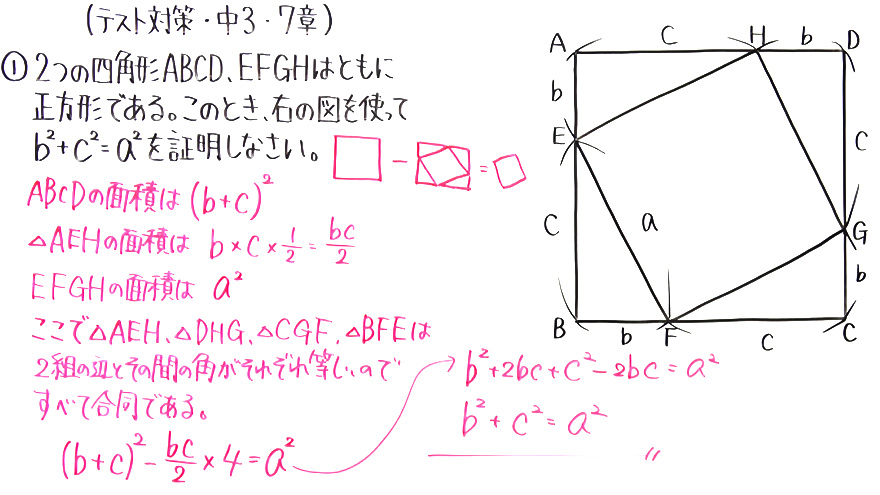 (テスト対策・中3・7章)
① 2つの四角形ABCD、EFGHはともに
正方形である。このとき、右の図を使って
b²+c²=a²を証明しなさい。
− =
ABCDの面積は (b+c)²
△AEHの面積は b×c×1/2=bc/2
EFGHの面積は a²
ここで△AEH、△DHG、△CGF、△BFEは
2組の辺とその間の角がそれぞれ等しいので
すべて合同である。
(b+c)²−bc/2×4=a²
b²+2bc+c²−2bc=a²
b²+c²=a²
〃
A C H b D
b
E C
C a G
b
B b F c C